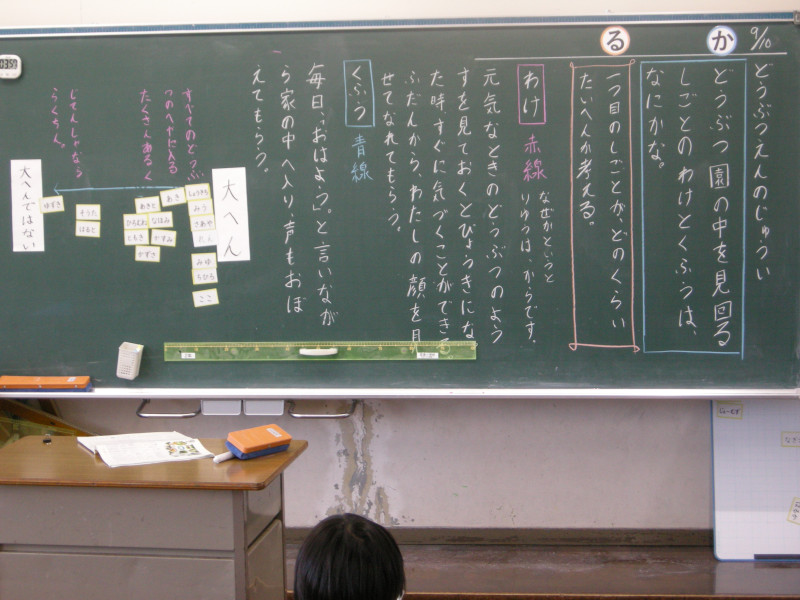 9/10
どうぶつえんのじゅうい
か
どうぶつ園の中を見回る
しごとのわけとくふうは、
なにかな。
る
一つ目のしごとが、どのくらい
たいへんか考える。
わけ 赤線
なぜかというと
りゆうは、からです。
元気なときのどうぶつのよう
すを見ておくとびょうきになっ
た時、すぐに気づくことができる
ふだんから、わたしの顔を見
せてなれてもらう。
くふう 青線
毎日、「おはよう。」と言いなが
ら家の中へ入り、声もおぼ
えてもらう。
大へん
すべてのどうぶ
つのへやに入る
たくさんあるく
じてんしゃなら
らくちん。
大へんではない
しょうきち
みう
さあや
みゆ
ちひろ
ここ
あき
あきと
ひろむ
ともき
なほみ
かすみ
かずさ
そうた
はると
ゆずき